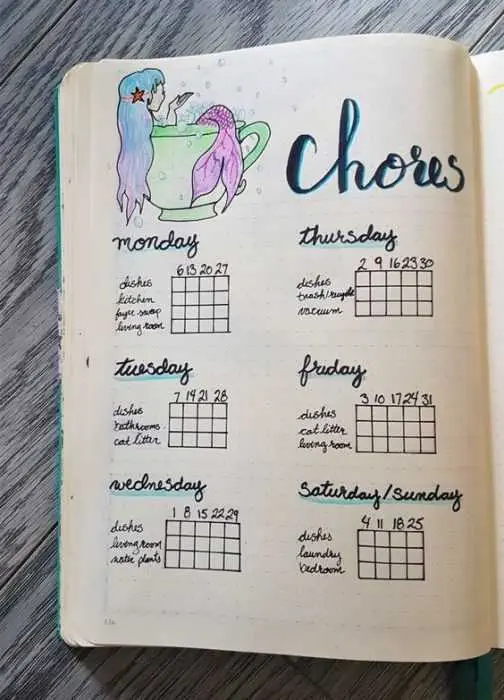 chores
monday
6 13 20 27
dishes
kitchen
foyer sweep
living room
thursday
2 9 16 23 30
dishes
trash/recycle
vacuum
tuesday
7 14 21 28
dishes
bathrooms
cat litter
friday
3 10 17 24 31
dishes
cat litter
living room
wednesday
1 8 15 22 29
dishes
living room
water plants
saturday/sunday
4 11 18 25
dishes
laundry
bedroom